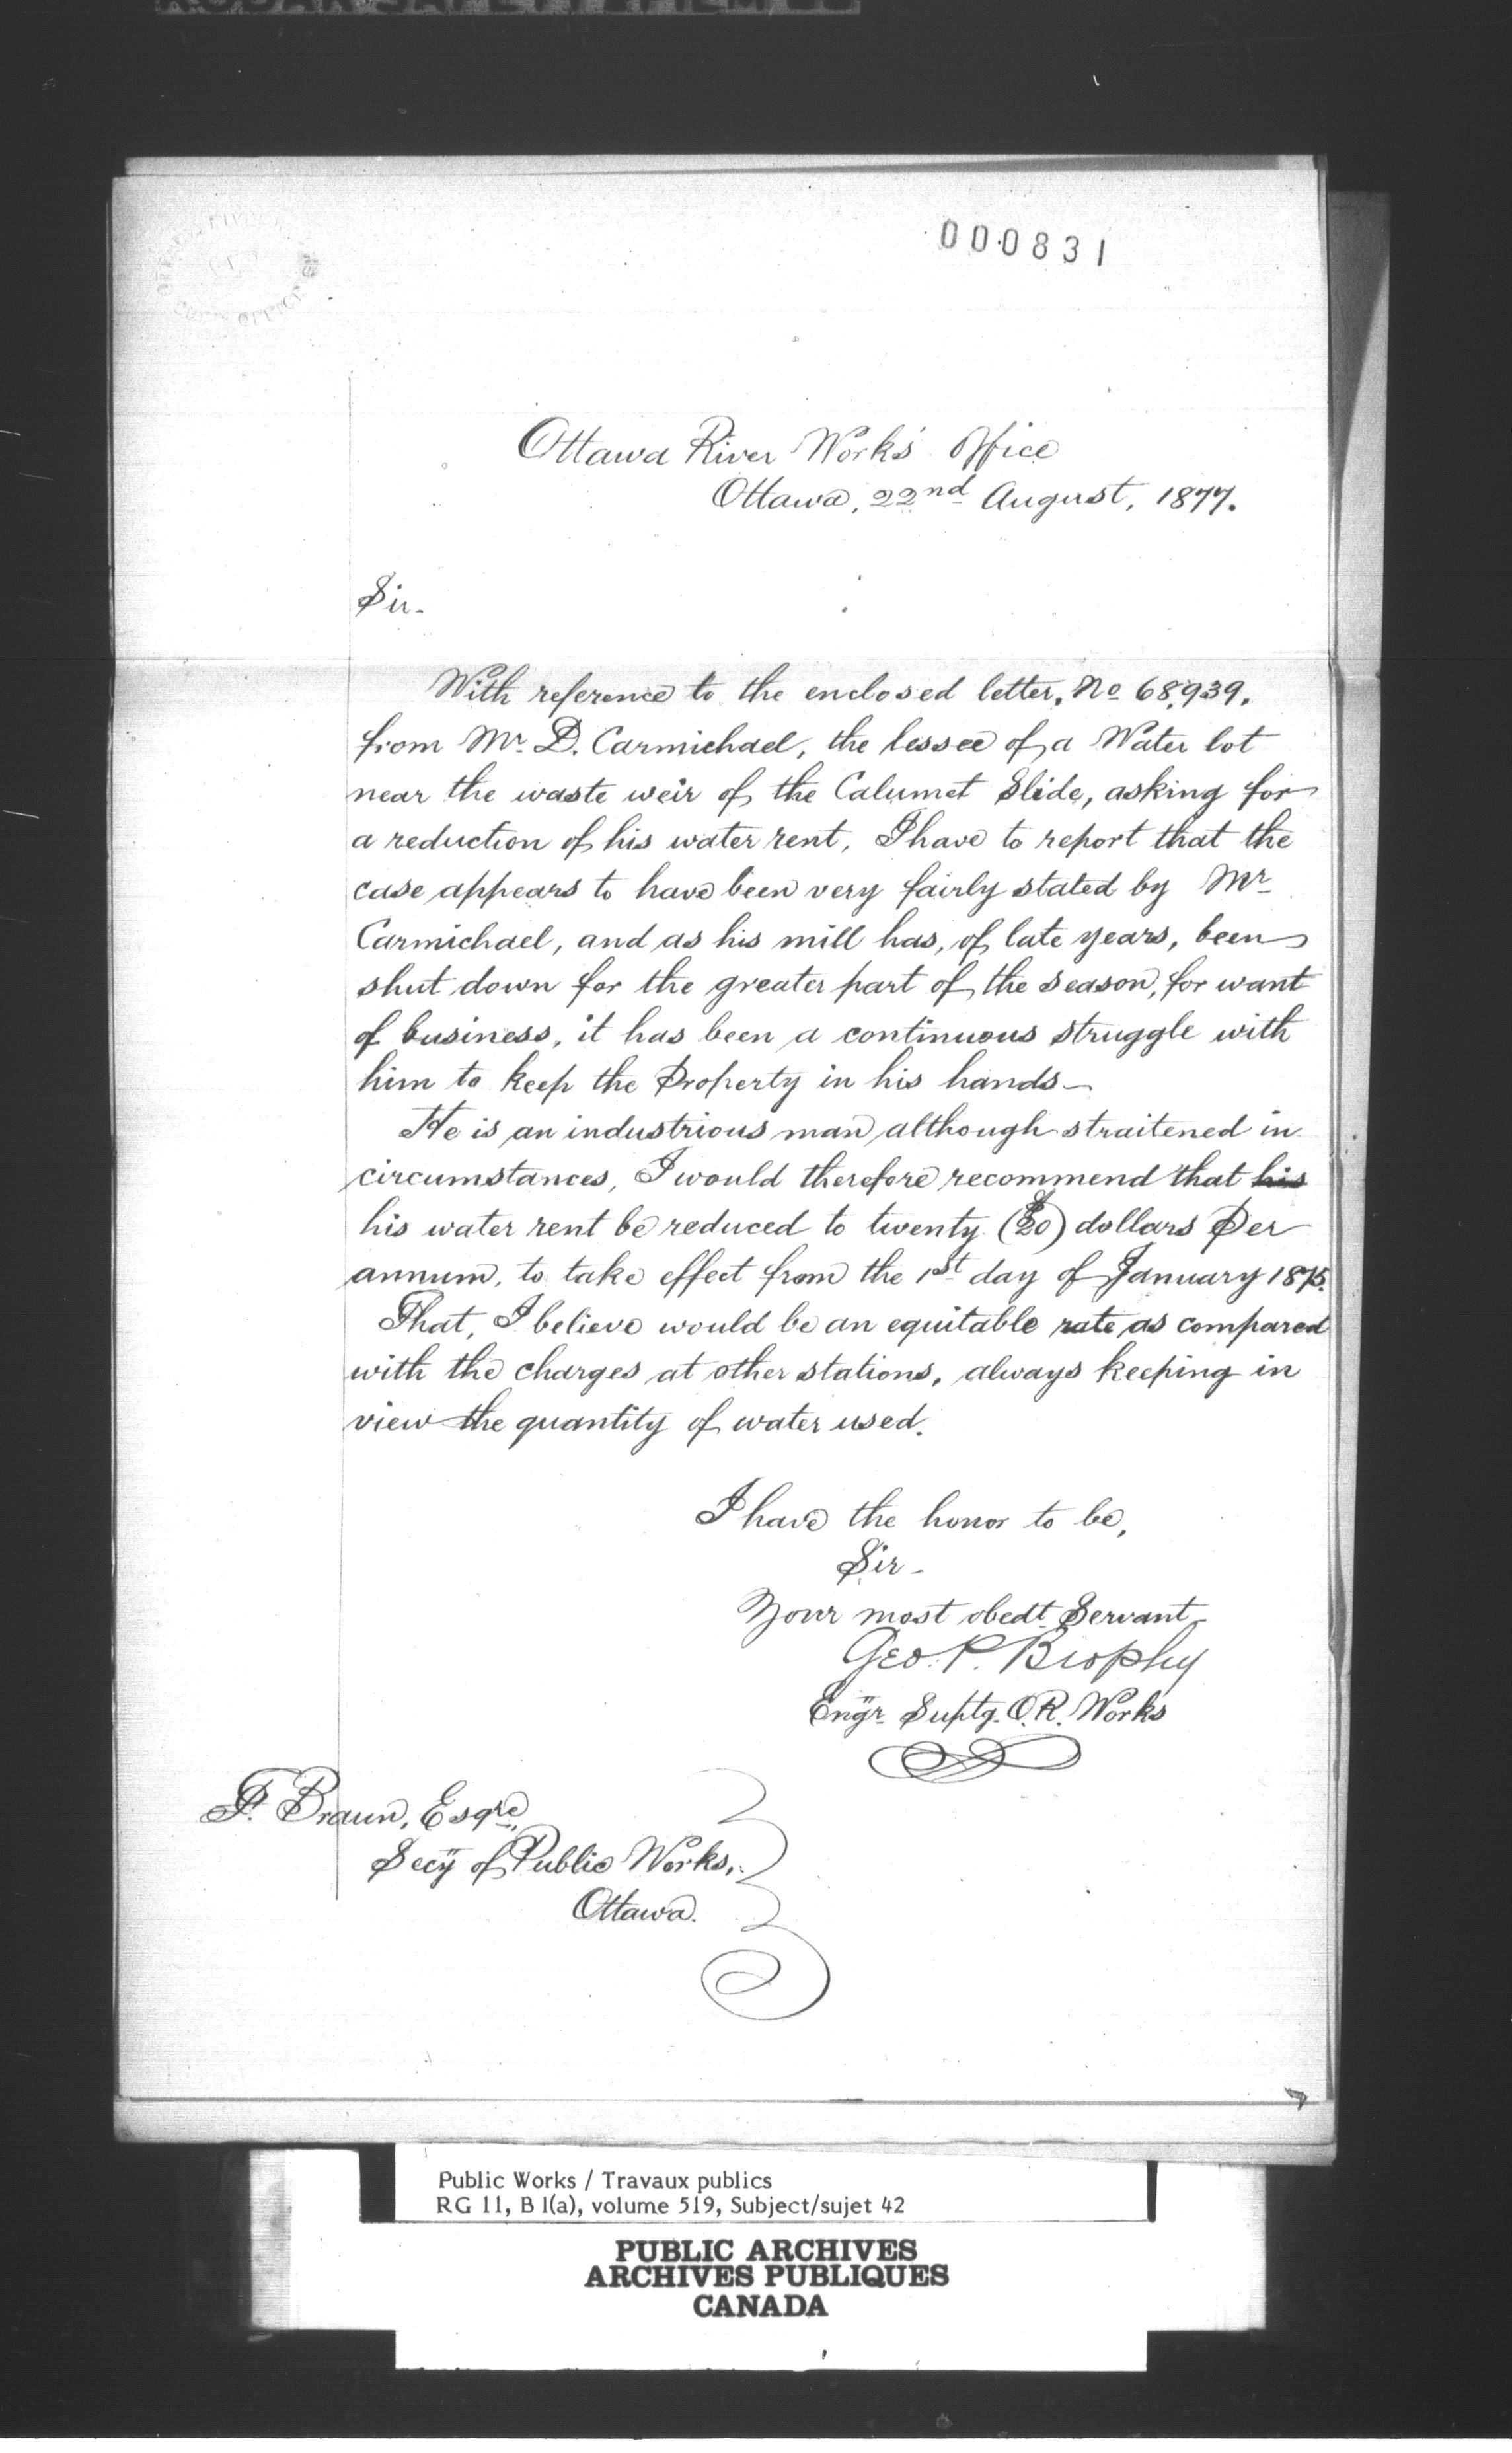 000831
Ottawa River Works' Office
Ottawa, 22nd August, 1877.
Sir-
With reference to the enclosed letter, No 68,939,
from Mr. D. Carmichael, the lessee of a Water lot
near the waste weir of the Calumet Slide, asking for
a reduction of his water rent, I have to report that the
case appears to have been very fairly stated by Mr
Carmichael, and as his mill has, of late years, been
shut down for the greater part of the season, for want
of business, it has been a continuous struggle with
him to keep the Property in his hands-
He is an industrious man although straitened in
circumstances, I would therefore recommend that his
his water rent be reduced to twenty ($20) dollars Per
annum, to take effect from the 1st day of January 1875.
That, I believe would be an equitable rate as compared
with the charges at other stations, always keeping in
view the quantity of water used.
I have the honor to be,
Sir-
Your most obedt Servant-
Geo. P. Brophy
Engr Suptg. O.R. Works
F. Braun, Esqre,
Secy of Public Works,
Ottawa.
Public Works / Travaux publics
RG 11, B 1(a), volume 519, Subject/sujet 42
PUBLIC ARCHIVES
ARCHIVES PUBLIQUES
CANADA